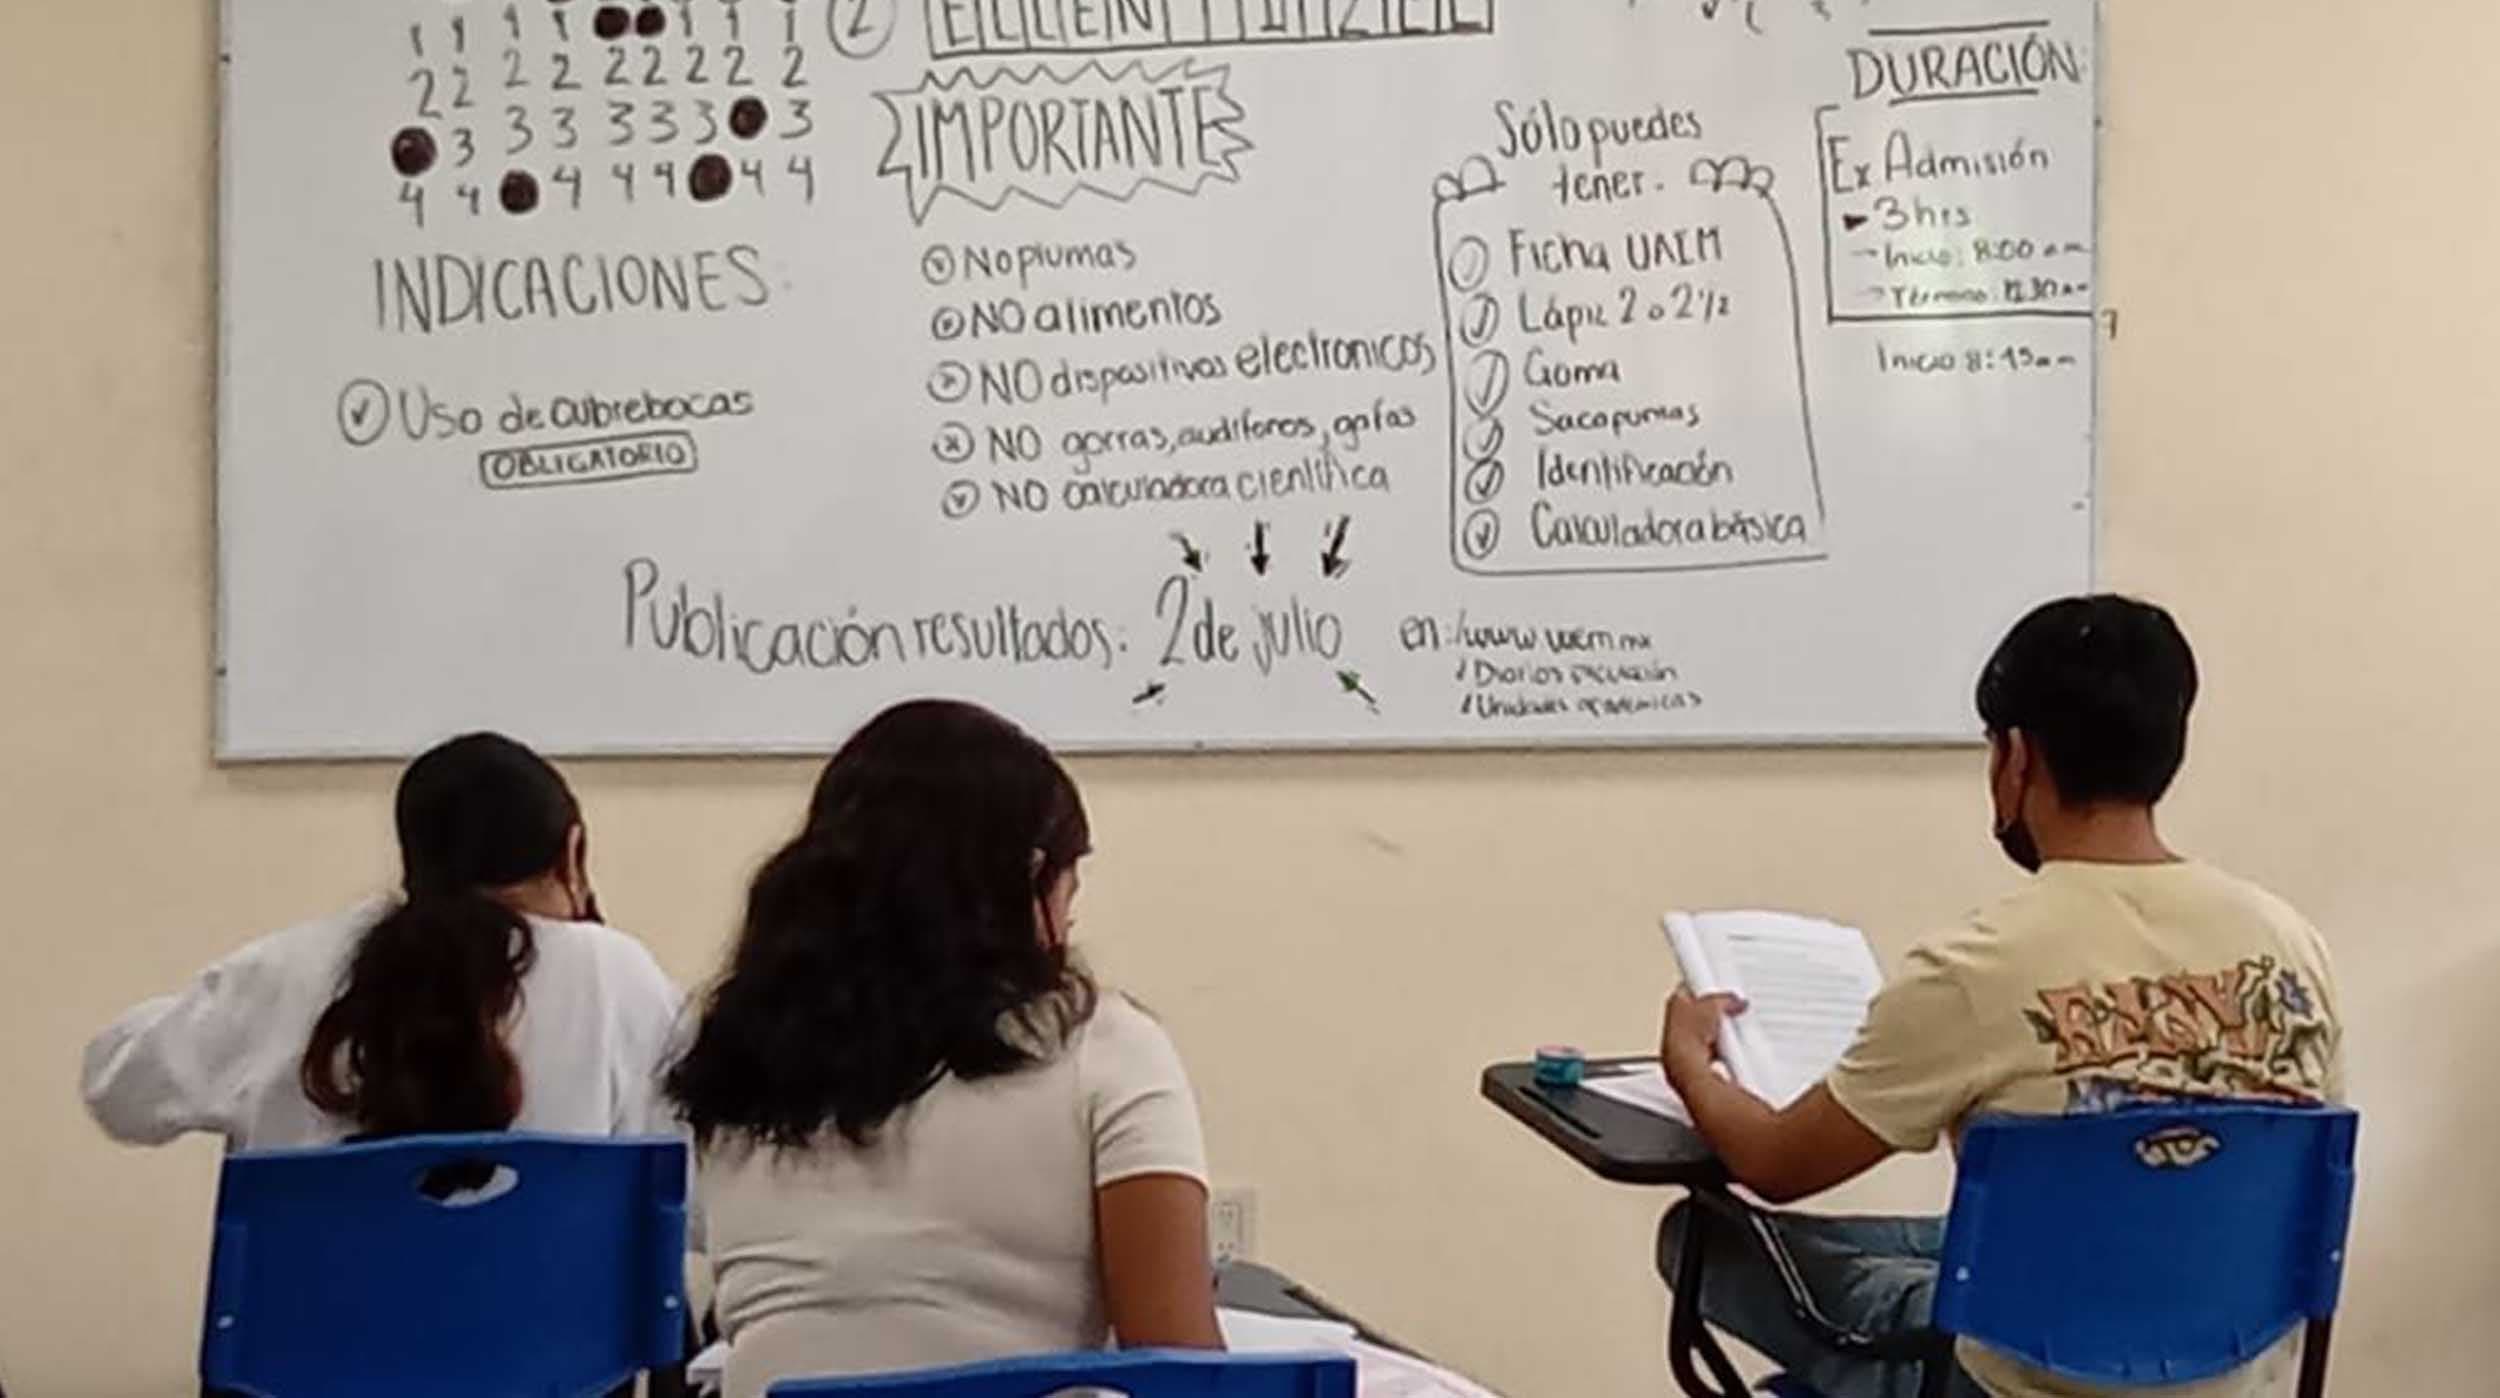 1 1 1 1 1 1 1
2 2 2 2 2 2 2 2 2
3 3 3 3 3 3 3
4 4 4 4 4 4 4
2
DURACIÓN:
IMPORTANTE
Sólo puedes
tener.
Ex Admisión
3 hrs
Inicio: 8:00 am
Inicio 8:45am
INDICACIONES:
Uso de cubrebocas
OBLIGATORIO
No plumas
NO alimentos
NO dispositivos electronicos
NO gorras, audífonos, gafas
NO calculadora científica
Ficha UAEM
Lápiz 2 o 2 1/2
Goma
Sacapuntas
Identificación
Calculadora básica
Publicación resultados: 2 de julio en: /www uaem mx
/ Diarios
/ Unidades académicas